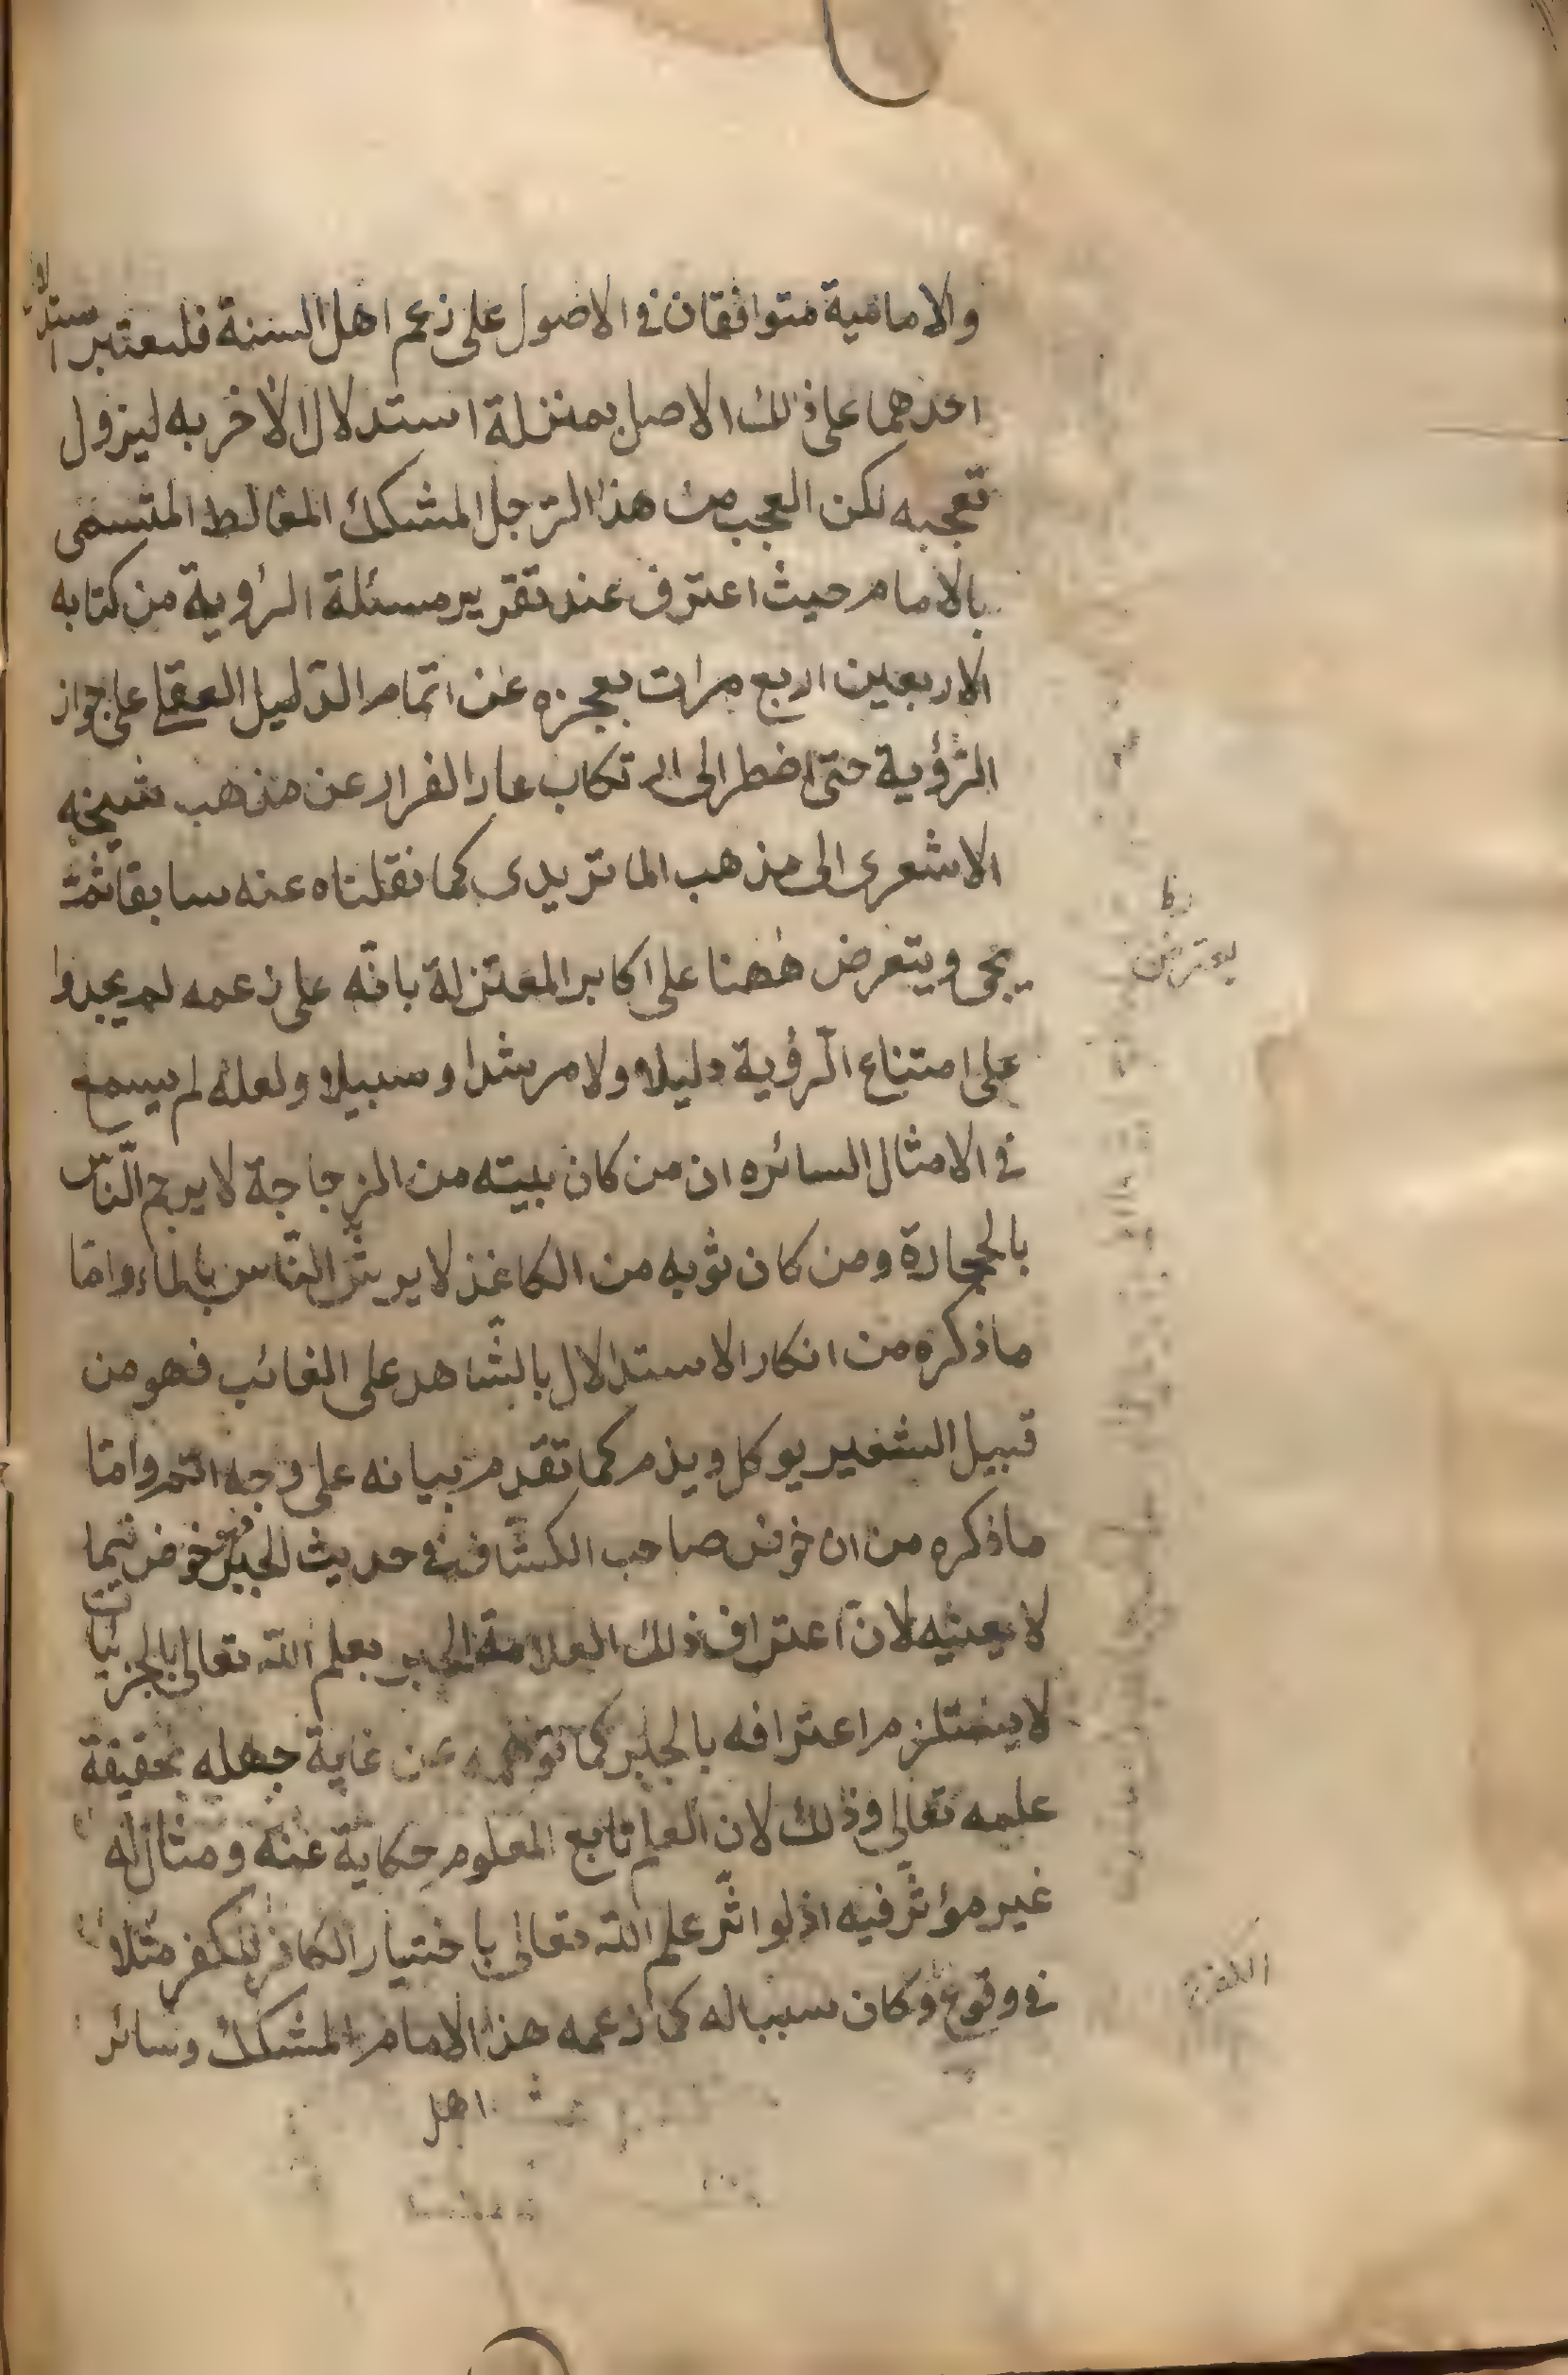 والامامية متوافقان فى الاصول على زعم اهل السنة فليعتبر استدلال
احدهما على ذلك الاصل بمنزلة استدلال الآخر به ليزول
تعجبه لكن العجب من هذا الرجل المشكك المغالط المتسمى
بالامام حيث اعترف عند تقرير مسئلة الرؤية من كتابه
الاربعين اربع مرات بعجزه عن اتمام الدليل العقلى على جواز
الرؤية حتى اضطر الى ارتكاب عار الفرار عن مذهب شيخه
الاشعرى الى مذهب الماتريدى كما نقلناه عنه سابقا ثمّ
يجى ويتعرض ههنا على اكابر المعتزلة بانّه على زعمه لم يجدوا
يعترض
على امتناع الرؤية دليلا ولا مرشدا وسبيلا ولعله لم يسمع
فى الامثال السائره ان من كان بيته من الزجاجة لا يرجم النّاس
بالحجارة ومن كان ثوبه من الكاغذ لا يرش النّاس بالماء وامّا
ما ذكره من انكار الاستدلال بالشّاهد على الغائب فهو من
قبيل الشعير يوكل ويذم كما تقدّم بيانه على وجه اتمّ وامّا
ما ذكره من ان خوض صاحب الكشّاف فى حديث الجبر خوض فيما
لا يعنيه لانّ اعتراف ذلك العلامة الحبر بعلم اللّه تعالى بالجزئيات
لا يستلزم اعترافه بالجبر كما توهمه عن غاية جهله بحقيقة
علمه تعالى وذلك لان العلم تابع المعلوم حكاية عنه ومثال له
غير مؤثّر فيه اذ لو اثّر علم اللّه تعالى باختيار الكافر للكفر مثلا
فى وقوع وكان سببا له كما زعمه هذا الامام المشكك وسائر
اهل